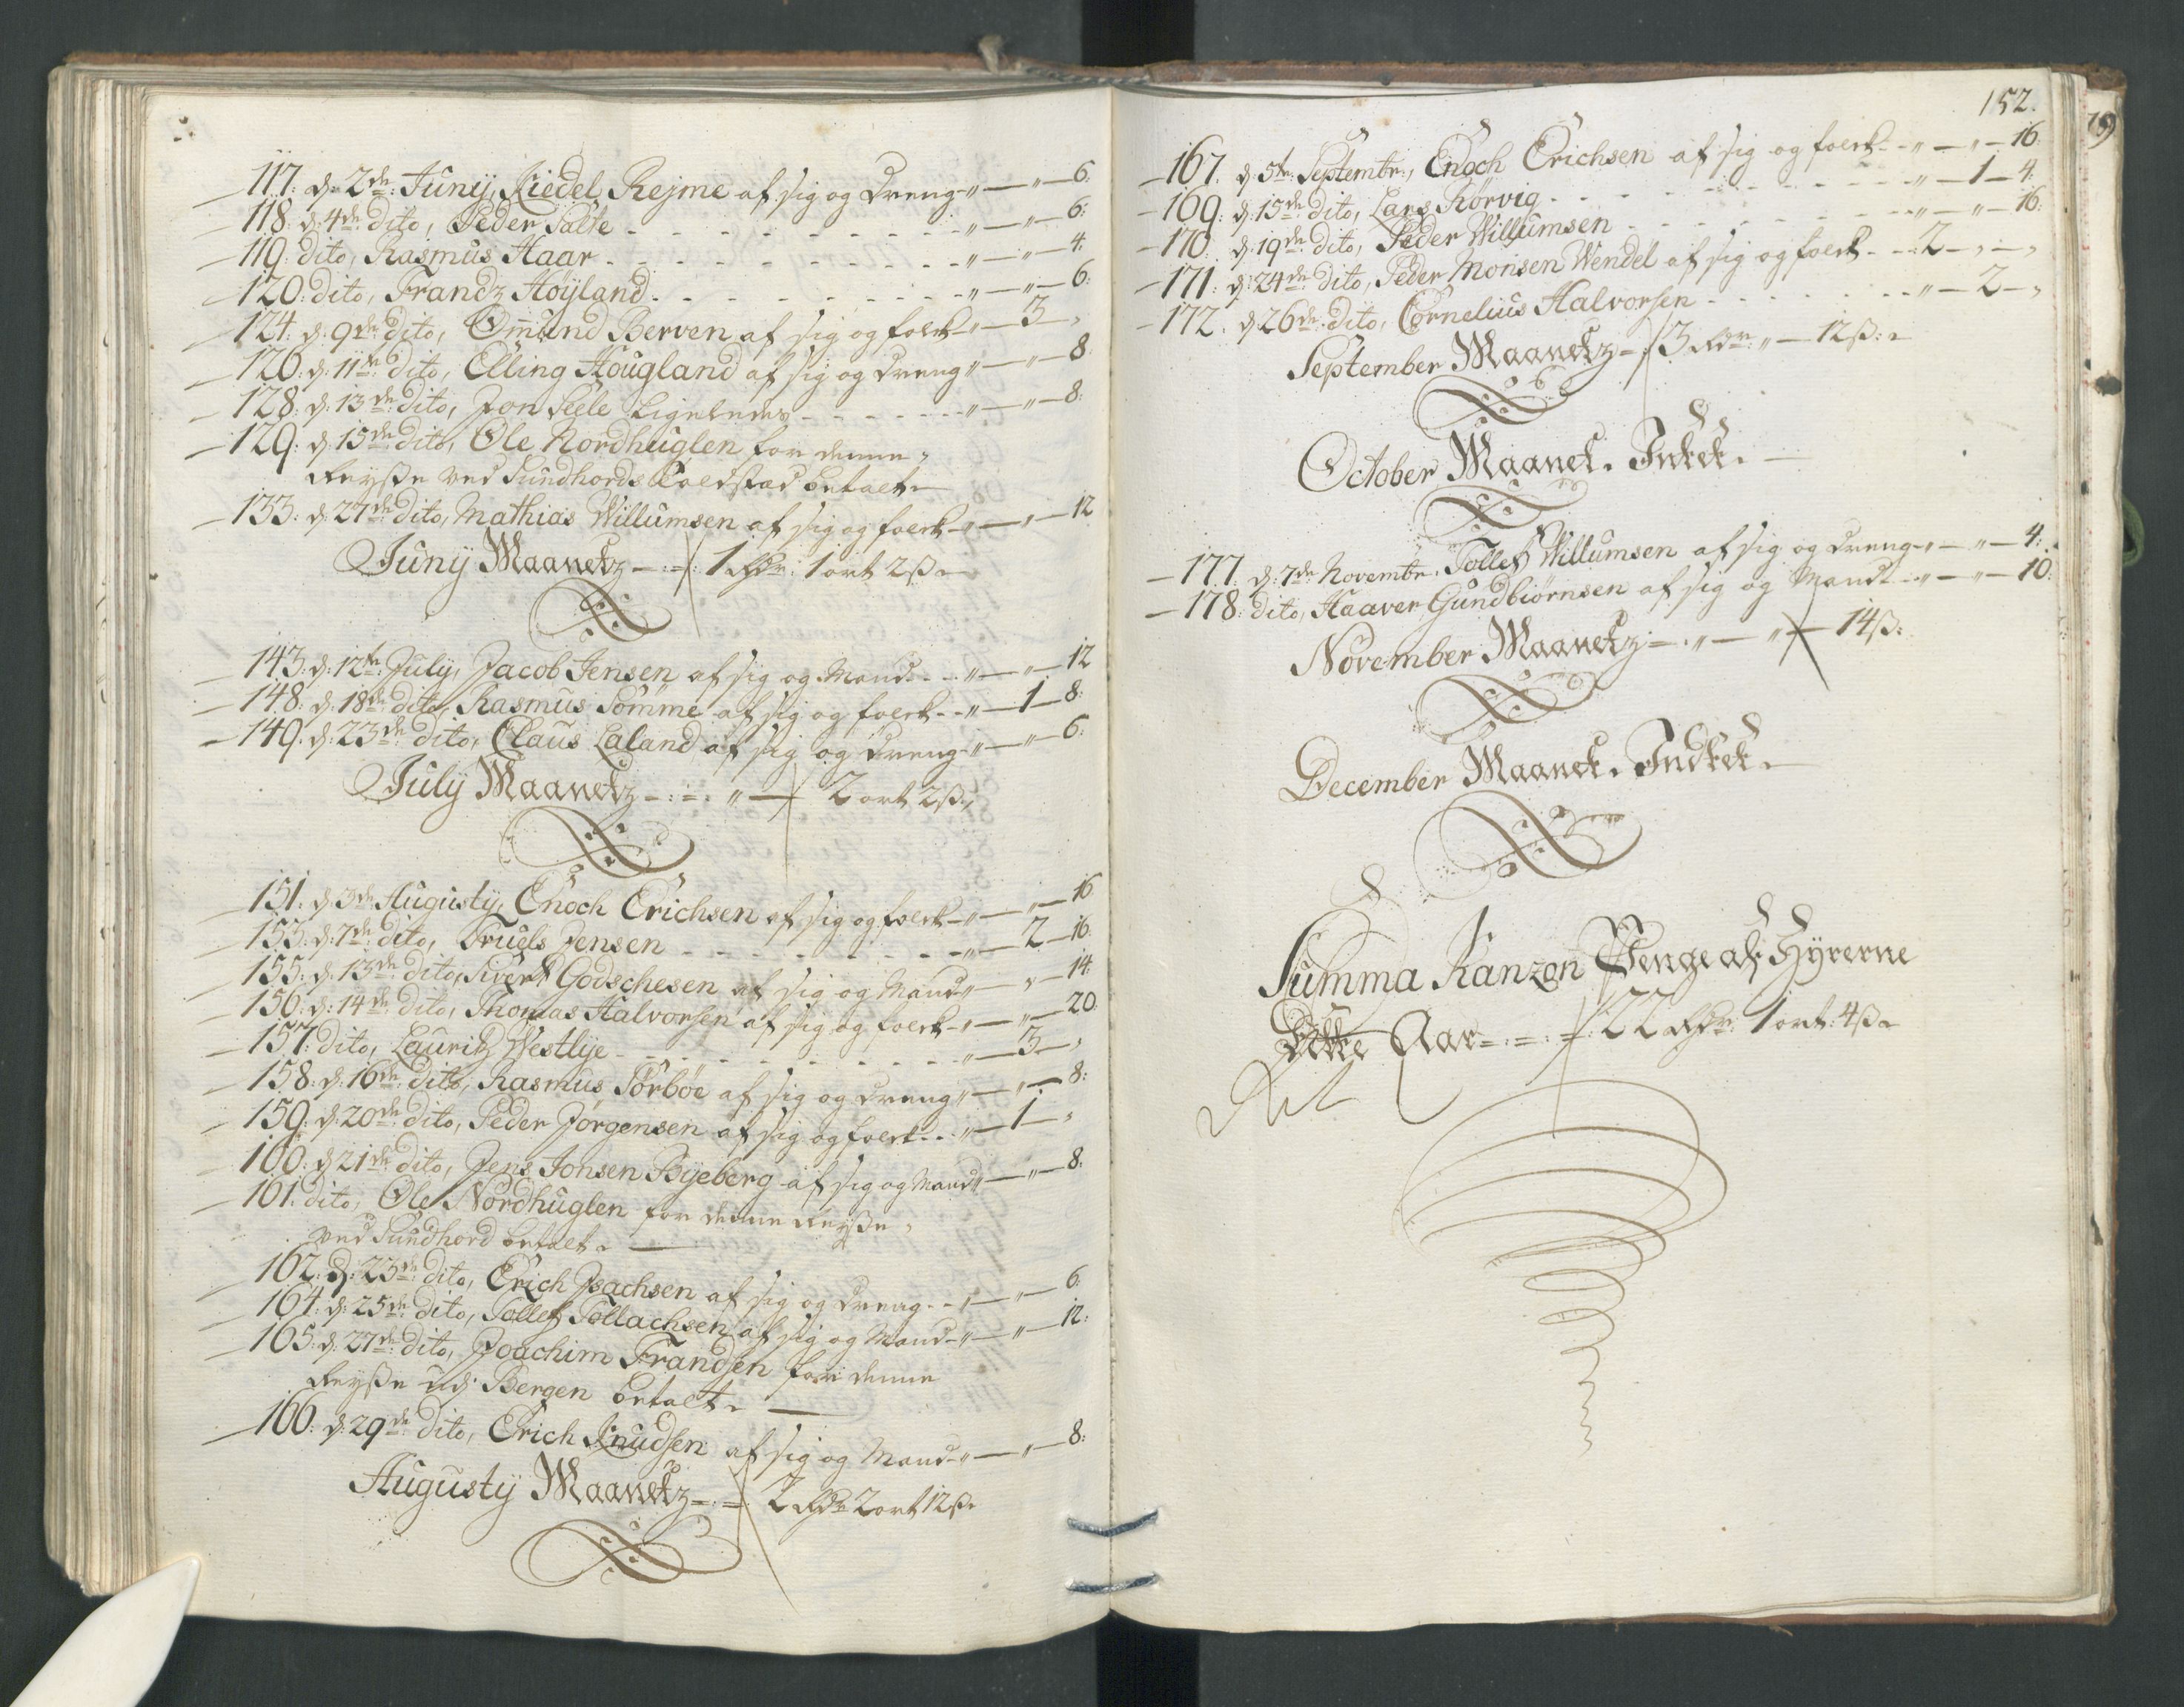 117: d: 2de: Junij, Riedel Rejme af sig og Dreng „ — „ — 6:
118: d: 4de: dito, Peder Salte - - - „ — „ — 6:
119: dito, Rasmus Haar - - - „ — „ — 4:
120: dito, Frandz Höÿland - - - „ — „ — 6:
124: d: 9de: dito, Omund Berven af sig og folck „ — 3 — „
126: d: 11te: dito, Elling Hougland af sig og Dreng „ — „ — 8:
128: d: 13de: dito, Jon Seele ligeledes - - - „ — „ — 8:
129: d: 15de: dito, Ole Nordhuglen for denne
Reyße ved Sundhords Toldstad betalt
133: d: 27de: dito, Mathias Willumsen af sig og folck „ — „ — 12
Junij Maanetz — 1 Rdr: 1 ort 2 ß
143: d: 12te: July, Jacob Jensen af sig og Mand - - „ — „ — 12
148: d: 18de: dito, Rasmus Sömme af sig og folck - - „ — 1 — 8:
149: d: 23de: dito, Claus Laland af sig og Dreng „ — „ — 6:
July Maanetz — „ — 2 ort 2 ß
151: d: 3de: Augusty, Enoch Erichsen af sig og folck „ — „ — 16
153: d: 7de: dito, Truels Jensen - - - „ — 2 — 16:
155: d: 13de: dito, Sivert Godschesen af sig og Mand „ — „ — 14:
156: d: 14de: dito, Thomas Halvorsen af sig og folck „ — „ — 20:
157: dito, Lauritz Westlye - - - „ — 3 — „
158: d: 16de: dito, Rasmus Sörböe af sig og Dreng „ — „ — 8:
159: d: 20de: dito, Peder Jörgensen af sig og folck - - „ — 1 — „
160: d: 21de: dito, Jens Jonsen Byeberg af sig og Mand „ — „ — 8:
161: dito, Ole Nordhuglen for denne Reyße
ved Sundhord betalt
162: d: 23de: dito, Erich Isachsen af sig og Dreng - - „ — „ — 6:
164: d: 25de: dito, Tollef Tollachsen af sig og Mand „ — „ — 12:
165: d: 27de: dito, Joachim Frandsen for denne
Reyße udj Bergen betalt
166: d: 29de: dito, Erich Knudsen af sig og Mand „ — „ — 8:
Augusty Maanetz — 2 Rdr 2 ort 12 ß
152.
167: d: 5te: Septembr:, Enoch Erichsen af sig og folck - - „ — „ — 16:
169: d: 15de: dito, Lars Rörvig - - - „ — 1 — 4:
170: d: 19de: dito, Peder Willumsen - - - „ — „ — 16:
171: d: 24de: dito, Peder Monsen Wendel af sig og folck - - 2 — „ — „
172: d: 26de: dito, Cornelius Halvorsen - - - „ — 2 — „
September Maanetz — 3 Rdr: „ — 12 ß:
October Maanet. Intet.
177: d: 7de: Novembr: Tollef Willumsen af sig og Dreng „ — „ — 4:
178: dito, Haaver Gundbiörnsen af sig og Mand „ — „ — 10:
November Maanetz — „ — „ — 14 ß:
December Maanet. Indtet.
Summa Ranzon Penge af Hyrerne
Dette Aar — 22 Rdr: 1 ort: 4 ß